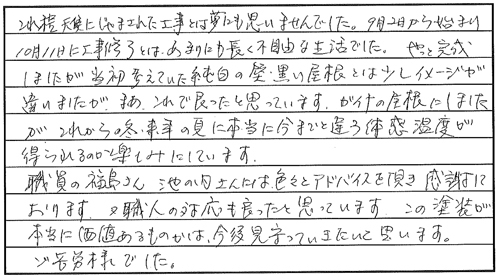 これ程天候にじゃまされた工事とは夢にも思いませんでした。9月2日から始まり
10月11日に工事終了とは、あまりにも長く不自由な生活でした。やっと完成
しましたが当初考えていた純白の壁・黒い屋根とは少しイメージが
違いましたが、まあ、これで良かったと思っています。ガイナの屋根にしました
が これからの冬・来年の夏に本当に今までと違う体感温度が
得られるのか楽しみにしています。
職員の福島さん 池の内さんには色々とアドバイスを頂き 感謝して
おります。又職人の対応も良かったと思っています。この塗装が
本当に価値あるものかは、今後見守っていきたいと思います。
ご苦労様でした。